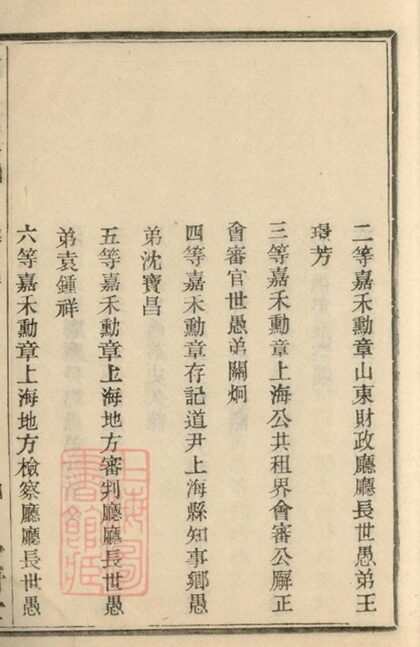 二等嘉禾勳章山東財政廳廳長世愚弟王
璟芳
三等嘉禾勳章上海公共租界會審公廨正
會審官世愚弟關炯
四等嘉禾勳章存記道尹上海縣知事鄉愚
弟沈寶昌
五等嘉禾勳章上海地方審判廳廳長世愚
弟袁鍾祥
六等嘉禾勳章上海地方檢察廳廳長世愚
上海圖書館藏